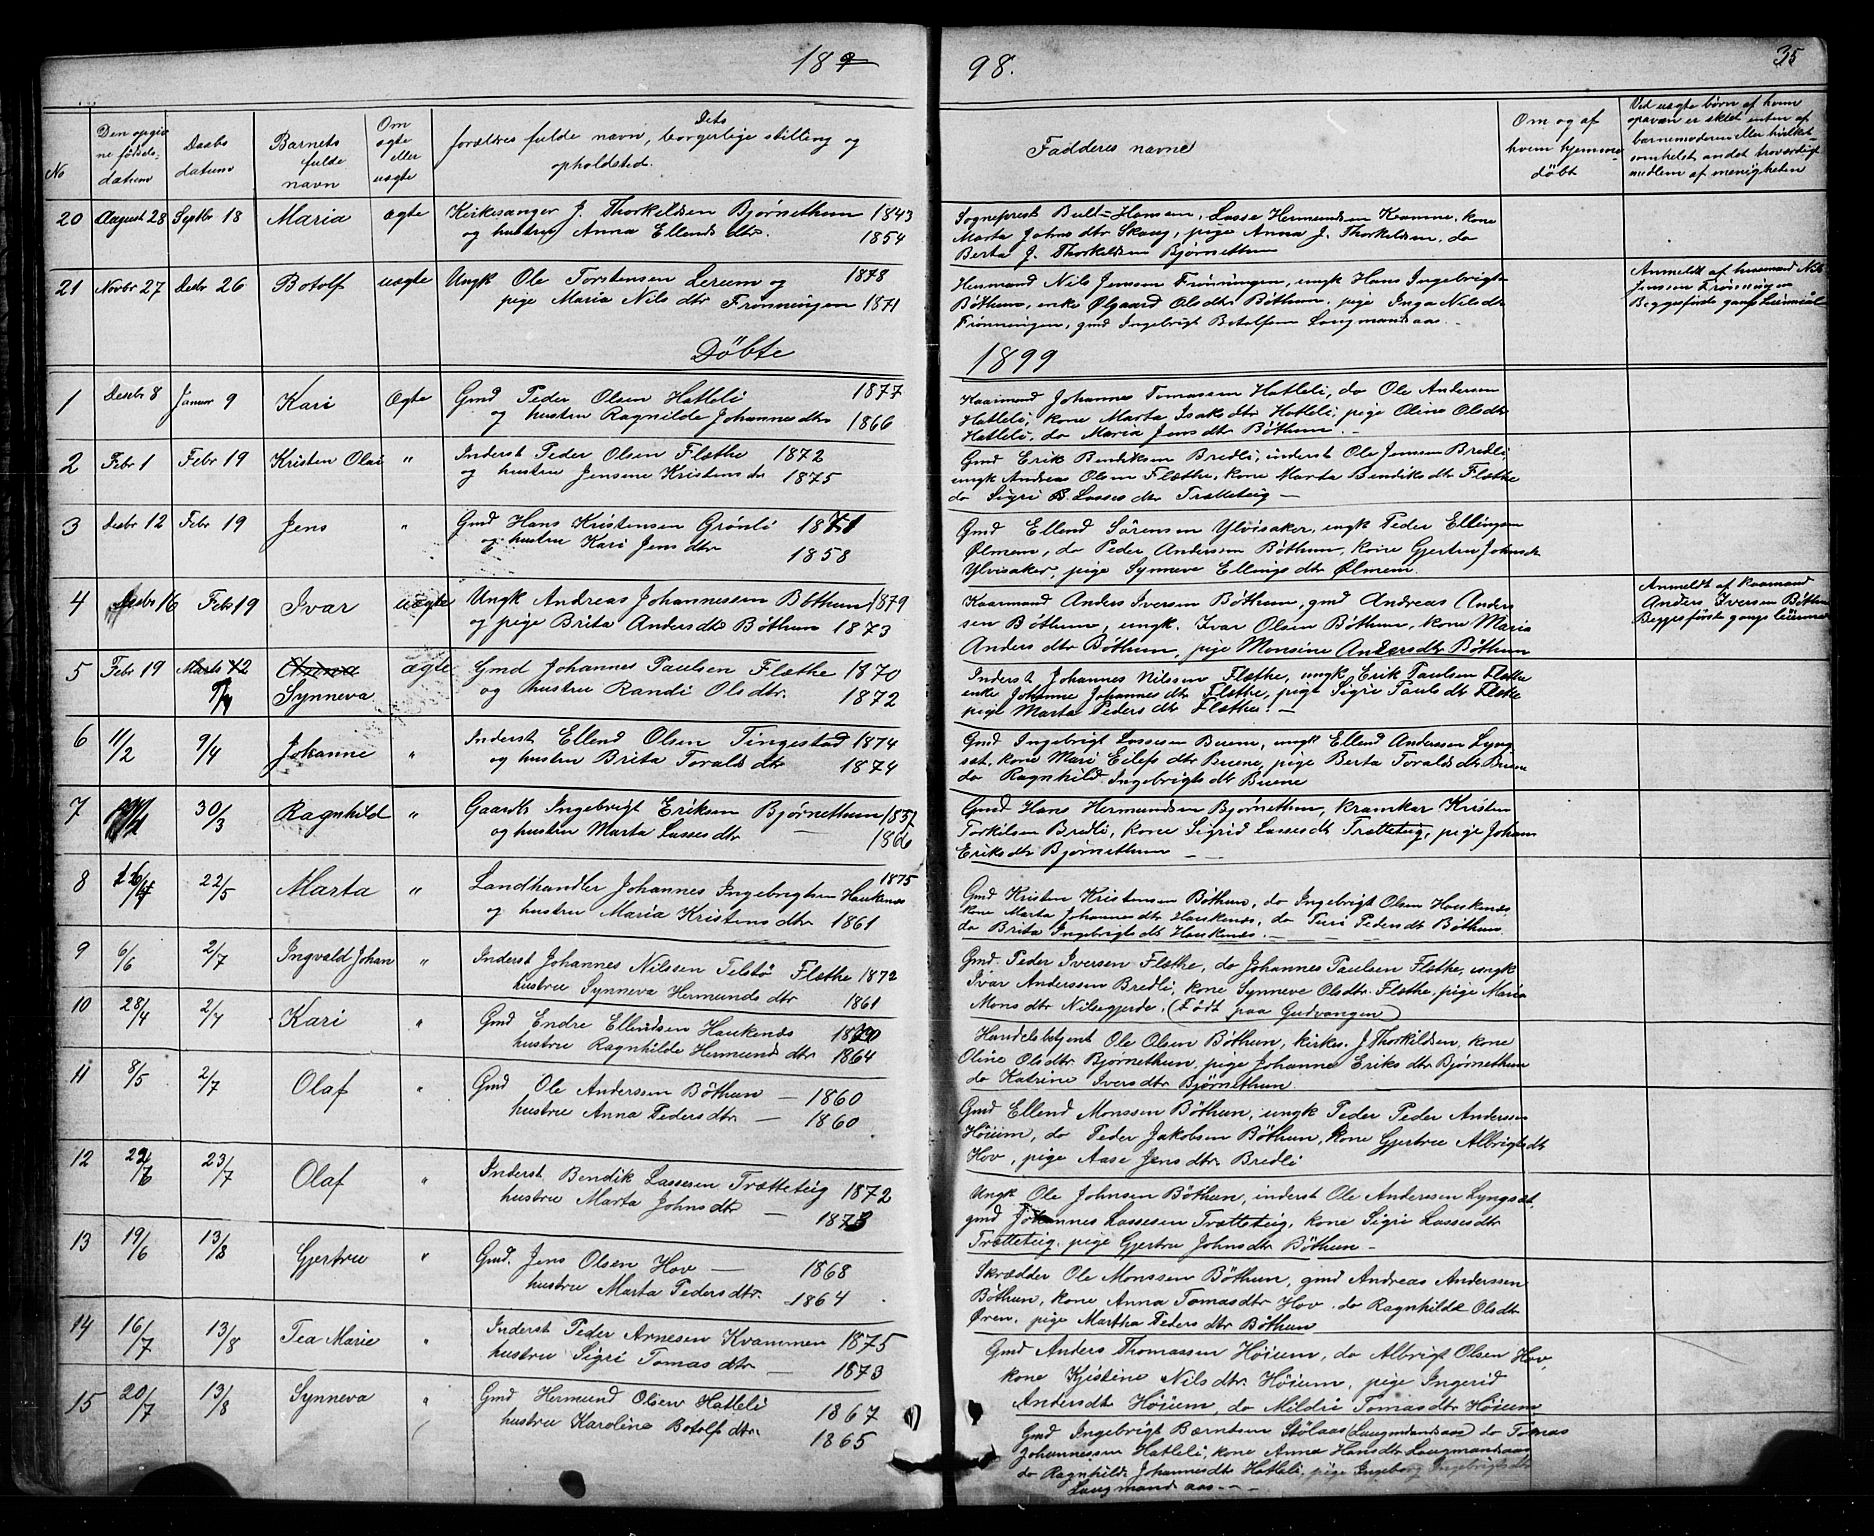 18 98.
35
No
Den opgiv
ne fødsels-
datum
Daabs
datum
Barnets
fulde
navn
Om
ægte
eller
uægte
Dets
forældres fulde navn, borgerlige stilling og
opholdsted.
Fadderes navne
Om og af
hvem hjemme-
døbt
Ved uægte børn af hvem
opgaven er skeet enten af
barnemoderen eller hvilket-
somhelst andet troværdigt
medlem af menigheden
20 August 28 Septbr 18 Maria ægte Kirkesanger J. Thorkildsen Bjørnethun 1843
og hustru Anna Ellends dtr. 1854
Sogneprest Bull-Hansen, Lasse Hermundsen Kvamme, kone
Marta Johns dtr Skoug, pige Anna J. Thorkildsen, do
Berta J. Thorkildsen Bjørnethun
21 Novbr 27 Desbr 26 Botolf uægte Ungk Ole Torstensen Lerum og 1878
pige Maria Nils dtr Frønningen 1871
Husmand Nils Jenssen Frønningen, ungk Hans Ingebrigts
Bøthun, enke Ølgaard Ols dtr Bøthun, pige Inga Nils dtr
Frønningen, gmd Ingebrigt Botolfsen Laugmandsaas.
Anmeldt af husmand Nils
Jenssen Frønningen
Begges første gangs leiermaal
Døbte 1899
1 Desbr 8 Januar 9 Kari Ægte Gmd Peder Olsen Hatleli 1877
og hustru Ragnilde Johannesdtr 1866
Kaarmand Johannes Tomassen Hatleli, do Ole Andersen
Hatleli, kone Marta Isaks dtr Hatleli, pige Oline Olsdtr
Hatleli, do Maria Jens dtr Bøthun.
2 Febr 1 Febr 19 Kristen Olai " Inderst Peder Olsen Flæthe 1872
og hustru Jensine Kristens dr 1875
Gmd Erik Bendiksen Bredli, inderst Ole Jonsen Bredli,
ungk Andreas Olsen Flæthe, kone Marta Bendiks dtr Flæthe
do Sigri B. Lasses dtr Trætteteig
3 Desbr 12 Febr 19 Jens " Gmd Hans Kristensen Grønli 1871
og hustru Kari Jens dtr 1858
Gmd Ellend Sørensen Ylvisaker, ungk Peder Ellingsen
Ølmem, do Peder Anderssen Bøthun, kone Gjertru Johnsdt
Ylvisaker, pige Synneva Ellings dtr Ølmem.
4 Desbr 16 Febr 19 Ivar uægte Ungk Andreas Johannessen Bøthun 1879
og pige Brita Andersdtr Bøthun 1873
Kaarmand Anders Iversen Bøthun, gmd Andreas Anders
sen Bøthun, ungk. Ivar Olsen Bøthun, kone Maria
Anders dtr Bøthun, pige Monsine Andersdtr Bøthun
Anmeldt af kaarmand
Anders Iversen Bøthun
Begges første gangs leierm
5 Febr 19 Marts 12 ægte Gmd Johannes Paulsen Flæthe 1870
9/4 Synneva og hustru Randi Olsdtr. 1872
Inderst Johannes Nilssen Flæthe, ungk Erik Paulsen Flæthe
enke Johanne Johannes dtr Flæthe, pige Sigri Pauls dtr Flæthe
pige Marta Peders dtr Flæthe.
6 11/2 9/4 Johanne " Inderst Ellend Olsen Tingestad 1874
og hustru Brita Toralds dtr 1874
Gmd Ingebrigt Lassesen Buene, ungk Ellend Anderssen Lyng
sæt, kone Mari Eilefs dtr Buene, pige Berta Toralds dtr Buene
do Ragnhild Ingebrigts dt Buene
7 30/3 Ragnhild " Gaardb Ingebrigt Eriksen Bjørnethun 1857
og hustru Marta Lasses dtr 1866
Gmd Hans Hermundsen Bjørnethun, kramkar Kristen
Torkilsen Bredli, kone Sigrid Lasses dt Trætteteig, pige Johan
Eriks dtr Bjørnethun
8 26/4 22/5 Marta " Landhandler Johannes Ingebrigtsen Haukenæs 1875
og hustru Maria Kristens dtr 1861
Gmd Kristen Kristensen Bøthun, do Ingebrigt Olsen Haukenæs
kone Marta Johannes dtr Haukenæs, do Turi Peders dt Bøthun
do Brita Ingebrigts dt Haukenæs.
9 6/6 2/7 Ingvald Johan " Inderst Johannes Nilssen Telstø Flæthe 1872
hustru Synneva Hermunds dtr 1861
Gmd. Peder Iversen Flæthe, do Johannes Paulsen Flæthe, ungk
Ivar Anderssen Bredli, kone Synneve Olsdtr. Flæthe, pige Maria
Mons dtr Nilsegjerde. (Født paa Gudvangen)
10 28/4 2/7 Kari " Gmd Endre Ellendsen Haukenæs 1870
hustru Ragnhilde Hermunds dtr 1864
Handelsbetjent Ole Olsen Bøthun, kirkes. J Thorkildsen, kone
Oline Olsdtr Bjørnethun, pige Johanne Eriks dtr Bjørnethun
do Katrine Ivers dtr Bjørnethun
11 8/5 2/7 Olaf " Gmd Ole Anderssen Bøthun 1860
hustru Anna Peders dtr 1860
Gmd Ellend Monssen Bøthun, ungk Peder Peder Anderssen
Høium, do Peder Jakobsen Bøthun, kone Gjertru Albrigts dt
Hov, pige Aase Jens dtr Bredli
12 22/6 23/7 Olaf " Inderst Bendik Lassesen Trætteteig 1872
hustru Marta Johns dtr 1873
Ungk Ole Johnsen Bøthun, inderst Ole Anderssen Lyngsæt,
gmd Johannes Lassesen Trætteteig, kone Sigri Lasses dtr
Trætteteig, pige Gjertru Johns dtr Bøthun
13 19/6 13/8 Gjertru " Gmd. Jens Olsen Hov 1868
hustru Marta Peders dtr. 1864
Skrædder Ole Monssen Bøthun, gmd Andreas Anderssen
Bøthun, kone Anna Tomasdtr Hov, do Ragnhilde Olsdtr
Øren, pige Martha Peders dtr Bøthun
14 16/7 13/8 Tea Marie " Inderst Peder Arnesen Kvammen 1875
hustru Sigri Tomas dtr 1873
Gmd Anders Thomassen Høium, do Albrigt Olsen Hov,
kone Kjistine Nils dtr Høium, pige Ingerid
Andersdtr Høium, do Mildri Tomasdtr Høium
15 20/7 13/8 Synneva " Gmd Hermund Olsen Hatleli 1867
hustru Karoline Botolfs dtr. 1865
Gmd Ingebrigt Berntsen Stølaas (Laugmandsaas) do Tomas
Johannessen Hatleli, kone Anna Hansdtr Laugmandsaas
do Ragnhilde Johannesdtr Hatleli, pige Ingeborg Ingebrigtsdtr
Laugmandsaas.